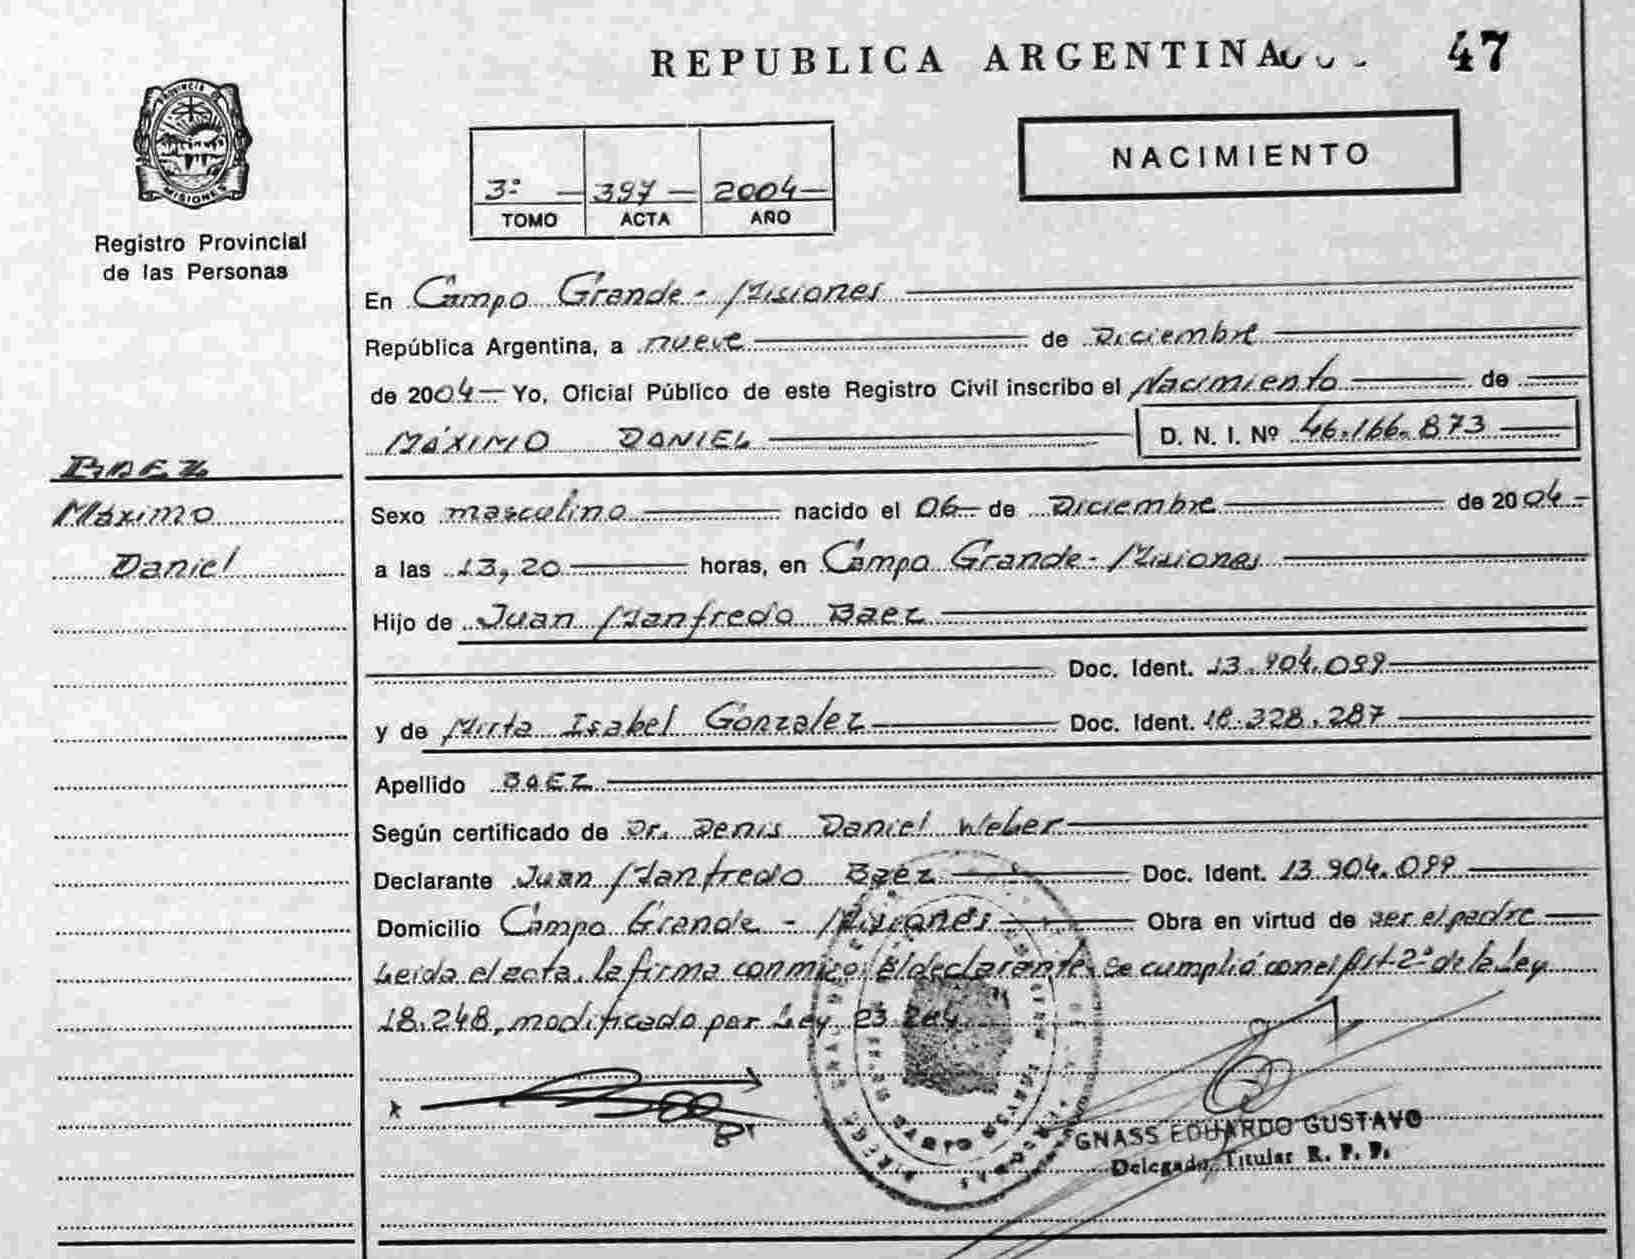 REPUBLICA ARGENTINA
47
PROVINCIA DE
MISIONES
Registro Provincial
de las Personas
NACIMIENTO
3º — 397 — 2004 —
TOMO ACTA AÑO
En Campo Grande - Misiones
República Argentina, a nueve de Diciembre
de 2004 — Yo, Oficial Público de este Registro Civil inscribo el Nacimiento de
MÁXIMO DANIEL D. N. I. Nº 46.166.873
BAEZ
Máximo
Daniel
Sexo masculino nacido el 06 de Diciembre de 2004 -
a las 13,20 horas, en Campo Grande - Misiones
Hijo de Juan Manfredo Baez
Doc. Ident. 13.904.099
y de Mirta Isabel Gonzalez Doc. Ident. 18.328.287
Apellido BAEZ
Según certificado de Dr. Denis Daniel Weber
Declarante Juan Manfredo Baez Doc. Ident. 13.904.099
Domicilio Campo Grande - Misiones Obra en virtud de ser el padre
Leida el acta, la firma conmigo: El declarante. Se cumplió con el Art. 2º de la Ley
18.248, modificado por Ley 23.264.
x
GNASS EDUARDO GUSTAVO
Delegado Titular R. P. P.